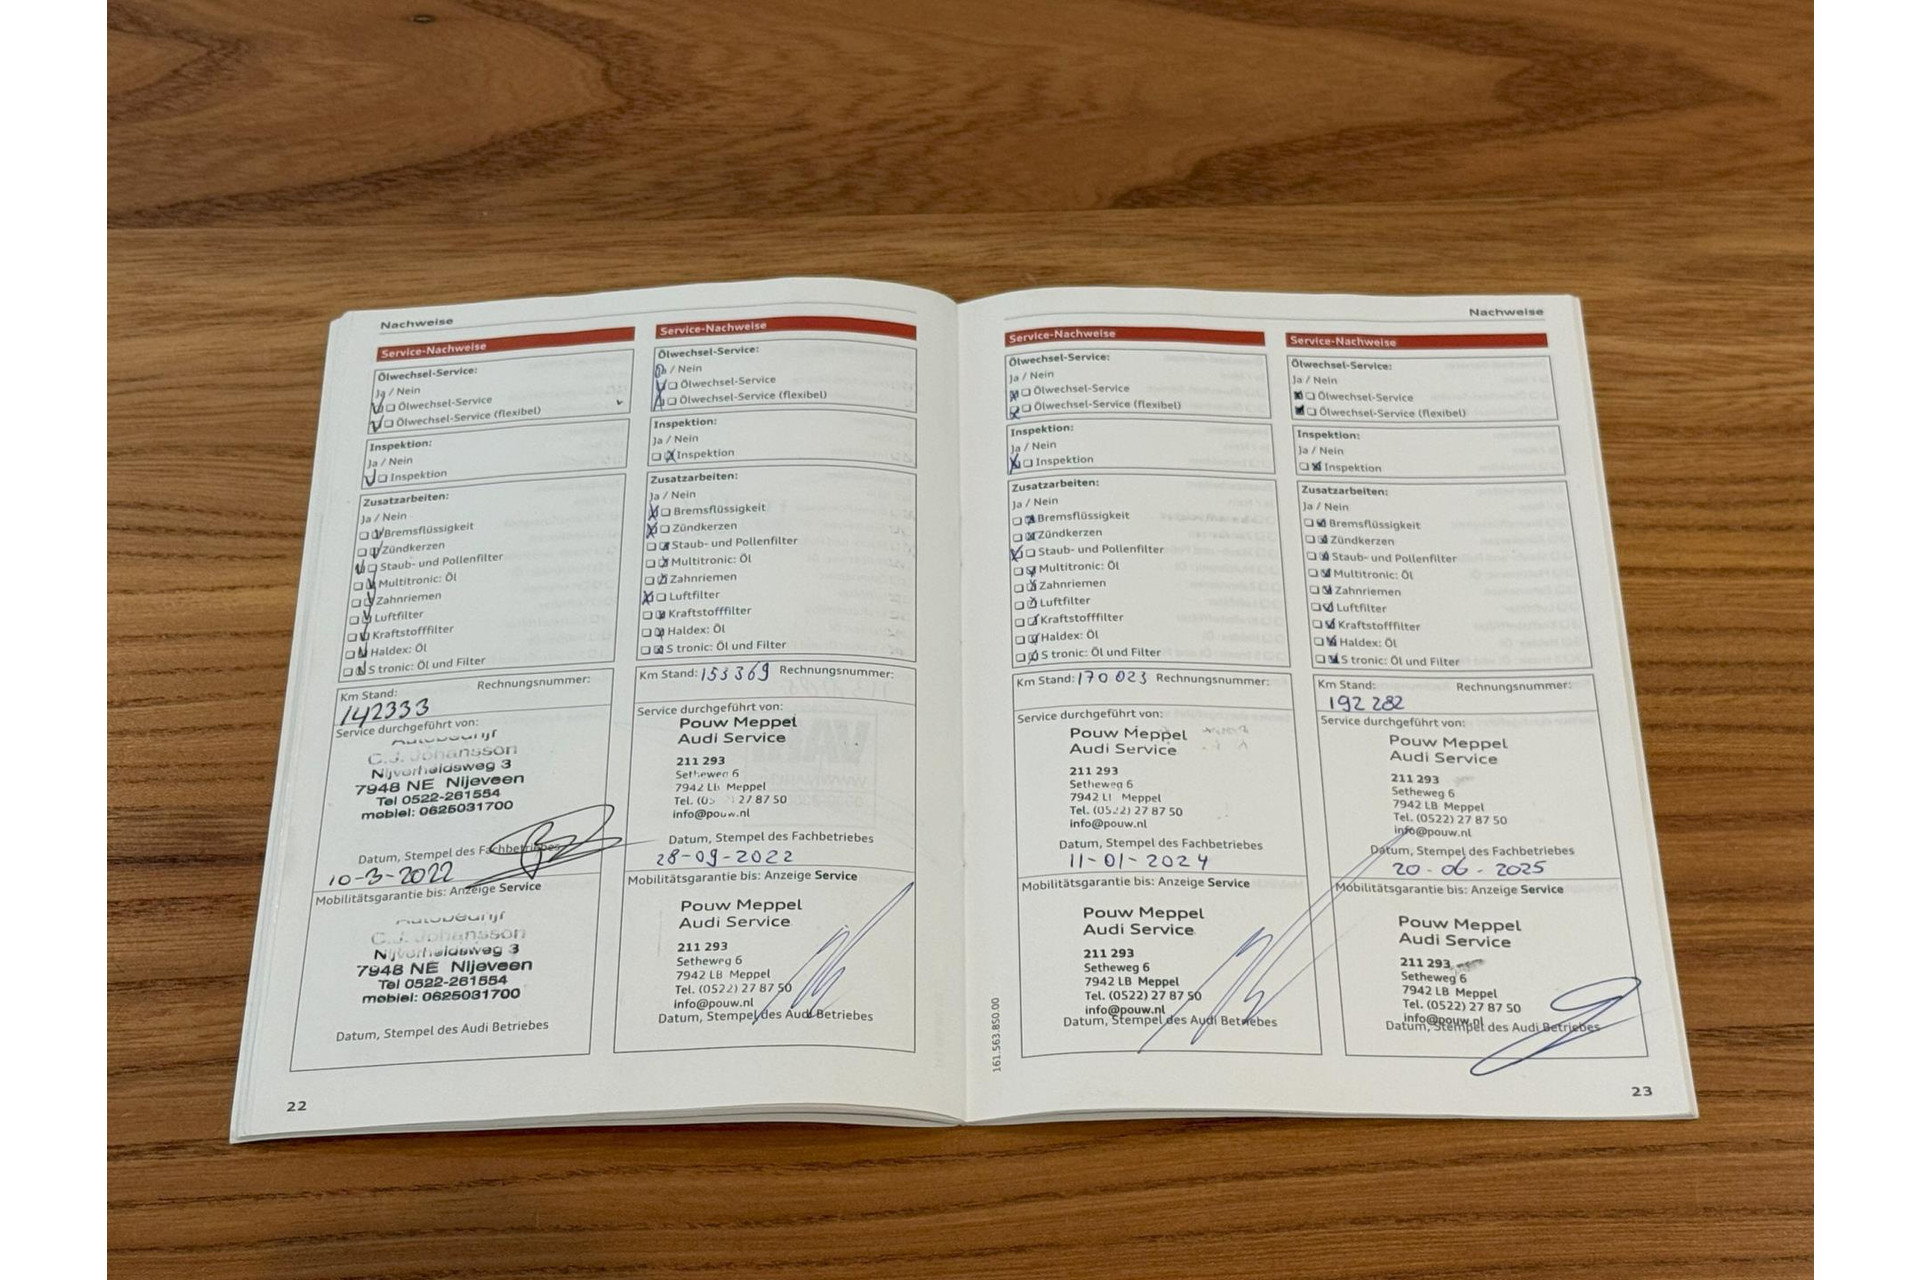 Nachweise
Service-Nachweise
Ölwechsel-Service:
Ja / Nein
Ölwechsel-Service
Ölwechsel-Service (flexibel)
Inspektion:
Ja / Nein
Inspektion
Zusatzarbeiten:
Ja / Nein
Bremsflüssigkeit
Zündkerzen
Staub- und Pollenfilter
Multitronic: Öl
Zahnriemen
Luftfilter
Kraftstofffilter
Haldex: Öl
S tronic: Öl und Filter
Km Stand: Rechnungsnummer:
142333
Service durchgeführt von:
Autobedrijf
C.J. Johansson
Nijverheidsweg 3
7948 NE Nijeveen
Tel 0522-261554
mobiel: 0625031700
Datum, Stempel des Fachbetriebes
10-3-2022
Mobilitätsgarantie bis: Anzeige Service
Autobedrijf
C.J. Johansson
Nijverheidsweg 3
7948 NE Nijeveen
Tel 0522-261554
mobiel: 0625031700
Datum, Stempel des Audi Betriebes
22
Service-Nachweise
Ölwechsel-Service:
Ja / Nein
Ölwechsel-Service
Ölwechsel-Service (flexibel)
Inspektion:
Ja / Nein
Inspektion
Zusatzarbeiten:
Ja / Nein
Bremsflüssigkeit
Zündkerzen
Staub- und Pollenfilter
Multitronic: Öl
Zahnriemen
Luftfilter
Kraftstofffilter
Haldex: Öl
S tronic: Öl und Filter
Km Stand: 153369 Rechnungsnummer:
Service durchgeführt von:
Pouw Meppel
Audi Service
211 293
Setheweg 6
7942 LB Meppel
Tel. (05 27 87 50
info@pouw.nl
Datum, Stempel des Fachbetriebes
28-09-2022
Mobilitätsgarantie bis: Anzeige Service
Pouw Meppel
Audi Service
211 293
Setheweg 6
7942 LB Meppel
Tel. (0522) 27 87 50
info@pouw.nl
Datum, Stempel des Audi Betriebes
Nachweise
Service-Nachweise
Ölwechsel-Service:
Ja / Nein
Ölwechsel-Service
Ölwechsel-Service (flexibel)
Inspektion:
Ja / Nein
Inspektion
Zusatzarbeiten:
Ja / Nein
Bremsflüssigkeit
Zündkerzen
Staub- und Pollenfilter
Multitronic: Öl
Zahnriemen
Luftfilter
Kraftstofffilter
Haldex: Öl
S tronic: Öl und Filter
Km Stand: 170023 Rechnungsnummer:
Service durchgeführt von:
Pouw Meppel
Audi Service
211 293
Setheweg 6
7942 LB Meppel
Tel. (0522) 27 87 50
info@pouw.nl
Datum, Stempel des Fachbetriebes
11-01-2024
Mobilitätsgarantie bis: Anzeige Service
Pouw Meppel
Audi Service
211 293
Setheweg 6
7942 LB Meppel
Tel. (0522) 27 87 50
info@pouw.nl
Datum, Stempel des Audi Betriebes
161.563.850.00
Service-Nachweise
Ölwechsel-Service:
Ja / Nein
Ölwechsel-Service
Ölwechsel-Service (flexibel)
Inspektion:
Ja / Nein
Inspektion
Zusatzarbeiten:
Ja / Nein
Bremsflüssigkeit
Zündkerzen
Staub- und Pollenfilter
Multitronic: Öl
Zahnriemen
Luftfilter
Kraftstofffilter
Haldex: Öl
S tronic: Öl und Filter
Km Stand: Rechnungsnummer:
192 282
Service durchgeführt von:
Pouw Meppel
Audi Service
211 293
Setheweg 6
7942 LB Meppel
Tel. (0522) 27 87 50
info@pouw.nl
Datum, Stempel des Fachbetriebes
20-06-2025
Mobilitätsgarantie bis: Anzeige Service
Pouw Meppel
Audi Service
211 293
Setheweg 6
7942 LB Meppel
Tel. (0522) 27 87 50
info@pouw.nl
Datum, Stempel des Audi Betriebes
23